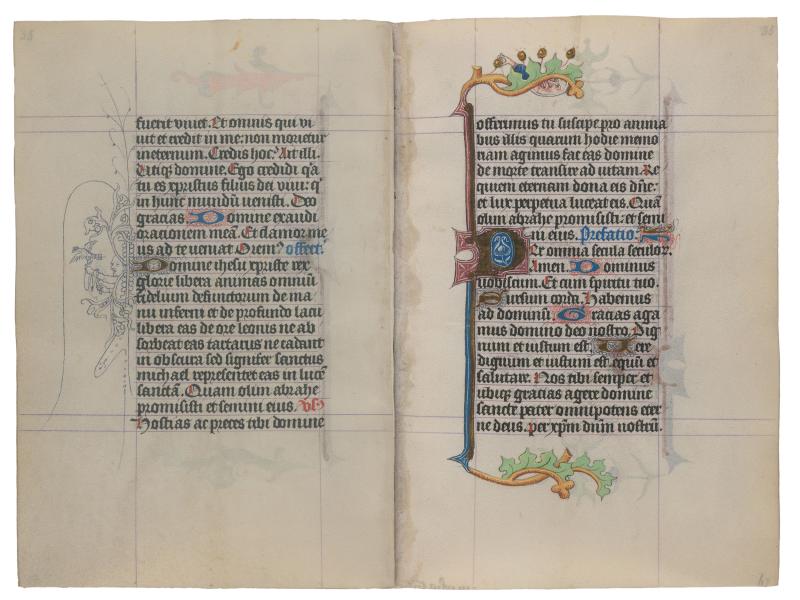 fuerit viuet. Et omnis qui vi
uit et credit in me: non morietur
ineternum. Credis hoc? Ait illi.
Vtiq̃ domine. Ego credidi q̃a
tu es xpristus filius dei viui: q̃
in hunc mundũ uenisti. Deo
gracias Domine exaudi
oracionem meã. Et clamor me
us ad te ueniat Orem̃ offect.
Domine ihesu xpriste rex
glorie libera animas omniũ
fidelium defunctorum de ma
nu inferni et de profundo lacu
libera eas de ore leonis ne ab
sorbeat eas tartarus ne cadant
in obscura sed signifer sanctus
michael representet eas in lucẽ
sanctã. Quam olim abrahe
promisisti et semini eius. Vs.
Hostias ac preces tibi domine
offerimus tu suscipe pro anima
bus illis quarum hodie memo
riam agimus fac eas domine
de morte transire ad uitam. Re
quiem eternam dona eis dñe:
et lux perpetua luceat eis. Quã
olim abrahe promisisti: et semi
ni eius. Prefatio:
Per omnia secula seculoꝝ.
Amen. Dominus
uobiscum. Et cum spiritu tuo.
Sursum corda. Habemus
ad dominũ. Gracias aga
mus domino deo nostro. Dig
num et iustum est. Vere
dignum et iustum est. equũ et
salutare. Nos tibi semper et
ubiqȝ gracias agere domine
sancte pater omnipotens eter
ne deus. per xp̃m dñm nostrũ.